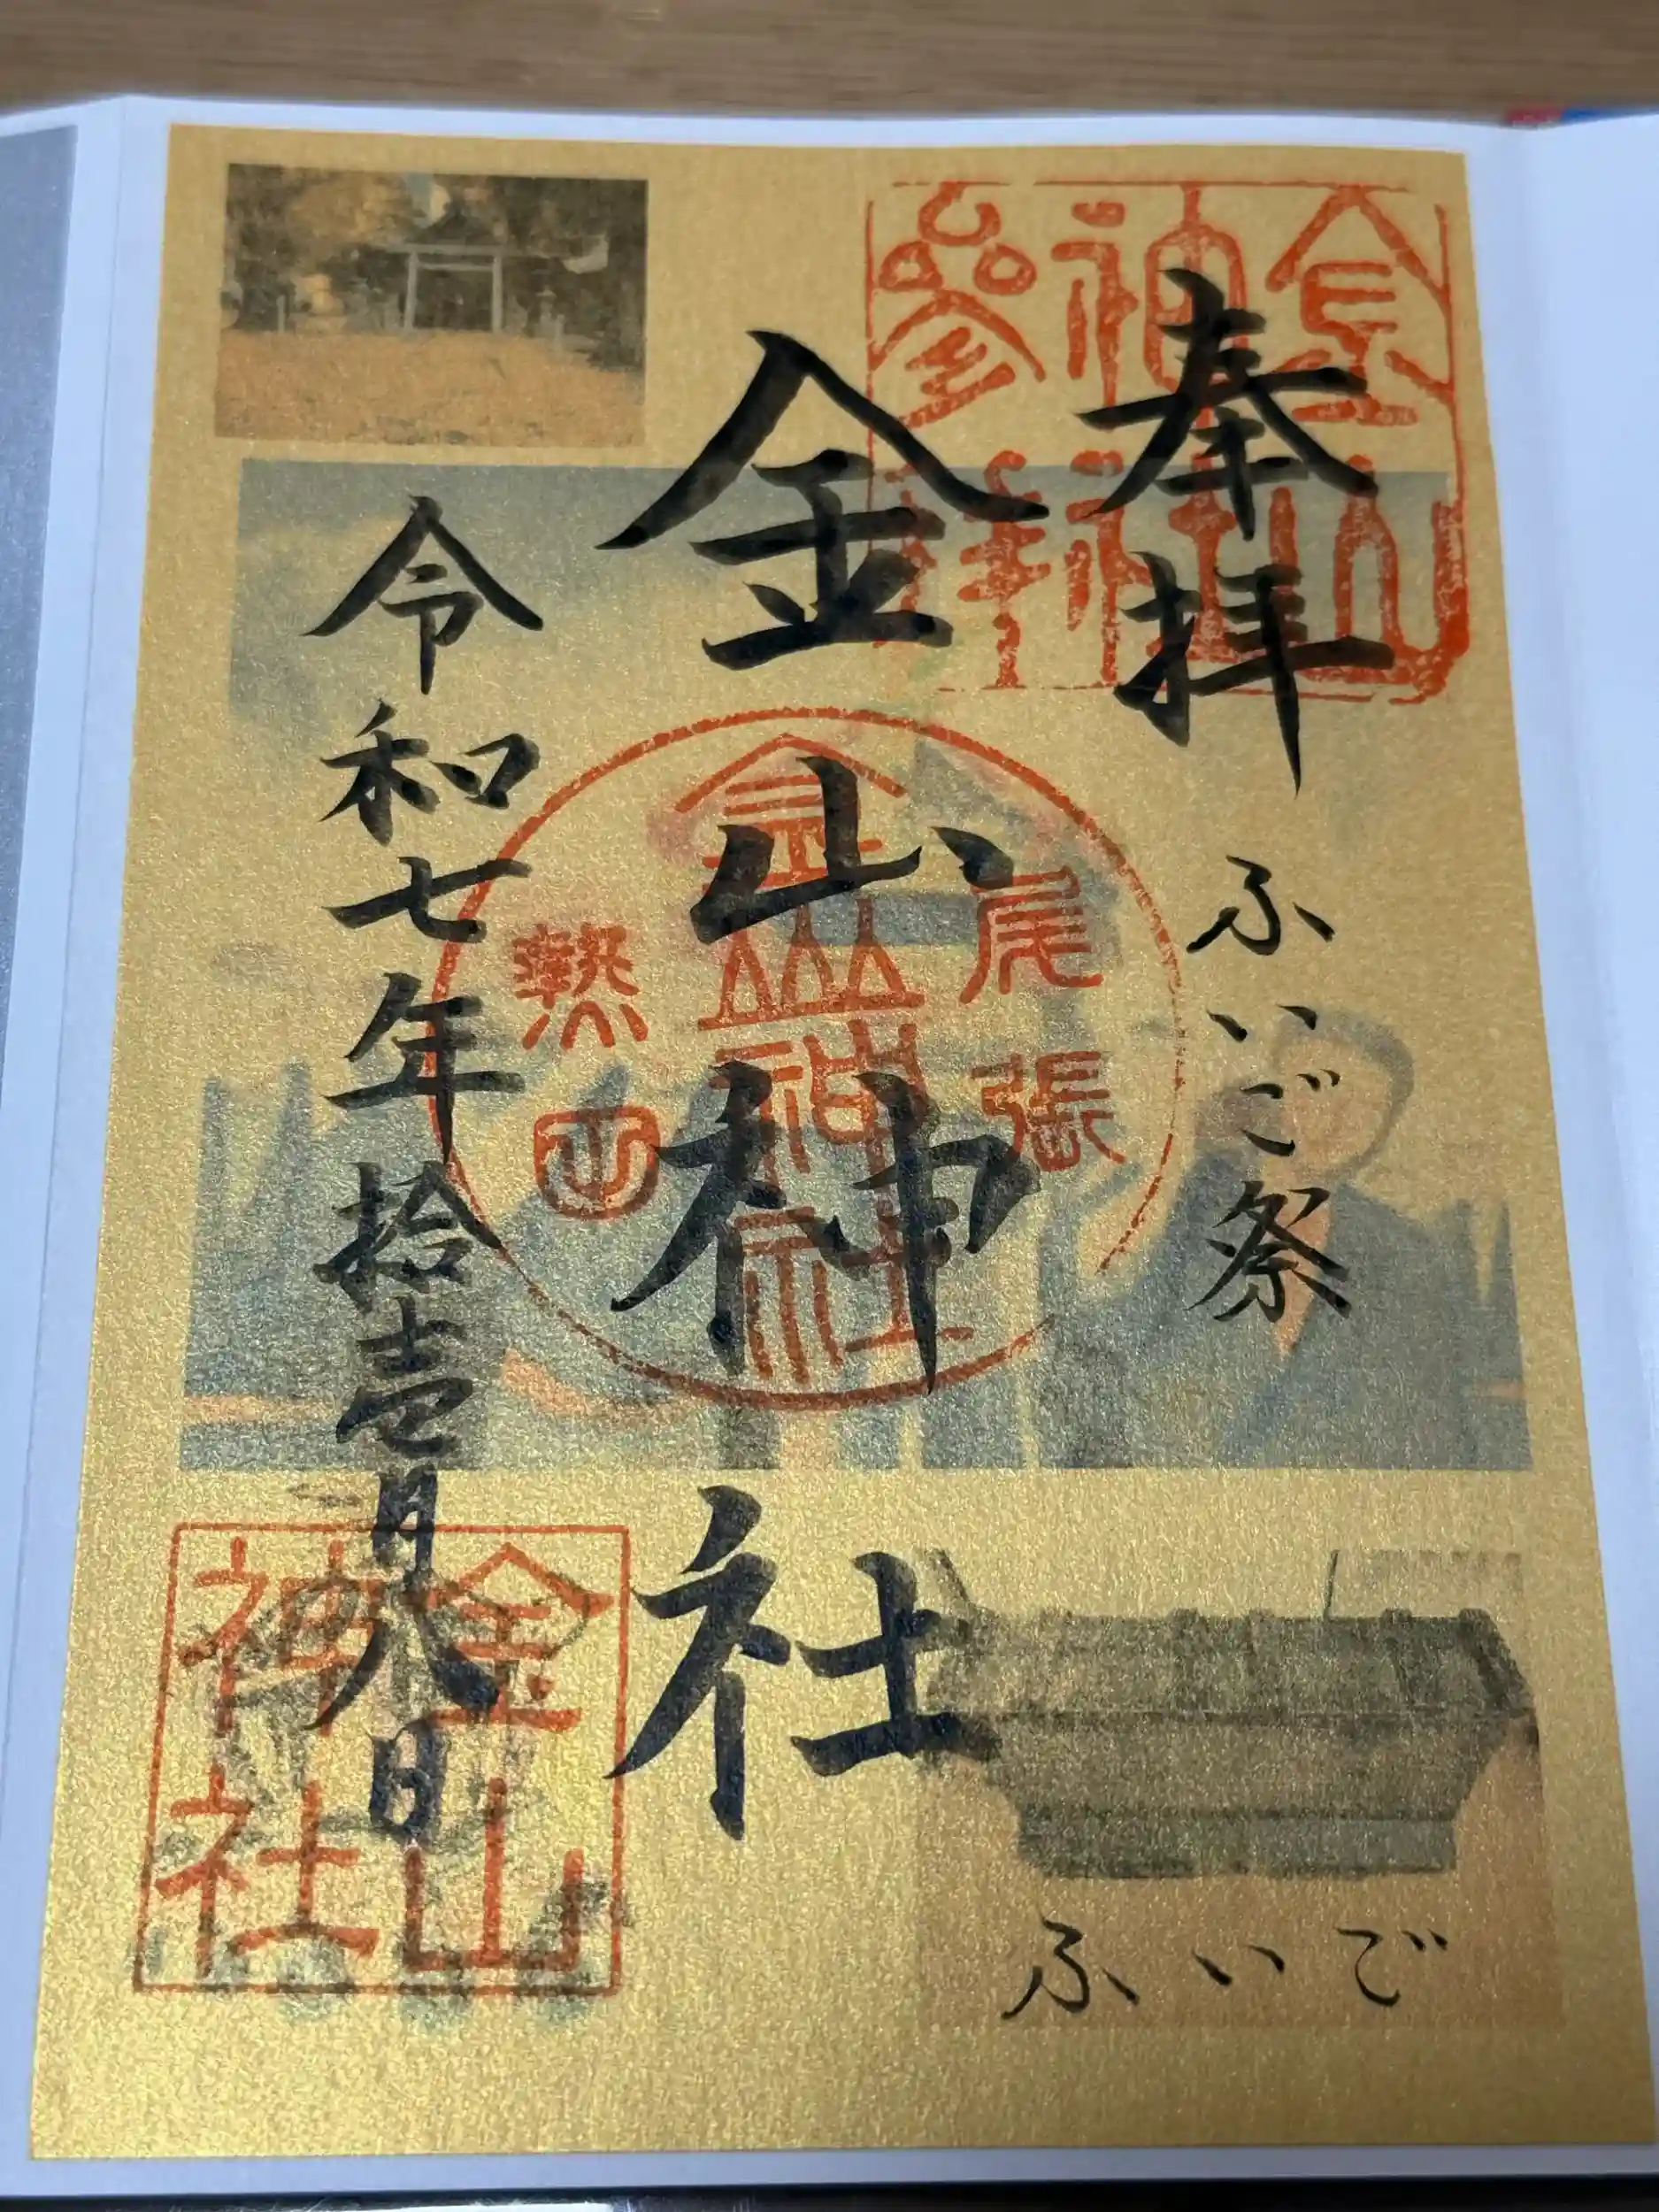 奉拝 ふいご祭
金山神社
令和七年拾壱月八日
ふいご
金山
神社
参拝
尾張
金山神社
熱田
金山
神社